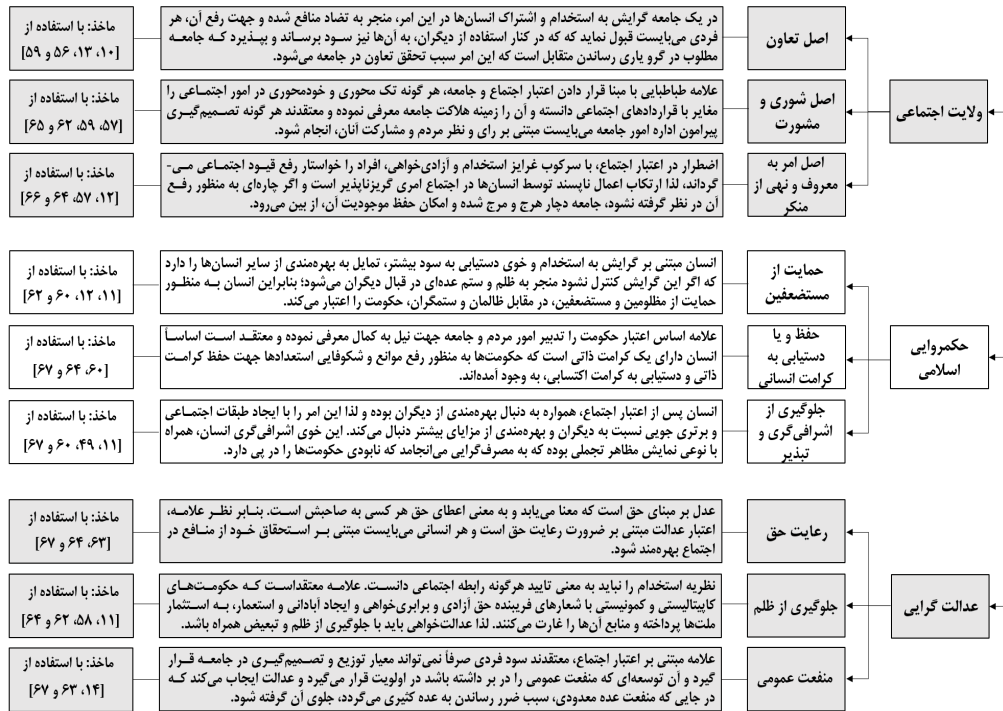 ولایت اجتماعی
اصل تعاون
در یک جامعه گرایش به استخدام و اشتراک انسان‌ها در این امر، منجر به تضاد منافع شده و جهت رفع آن، هر
فردی می‌بایست قبول نماید که که در کنار استفاده از دیگران، به آن‌ها نیز سود برساند و بپذیرد که جامعه
مطلوب در گرو یاری رساندن متقابل است که این امر سبب تحقق تعاون در جامعه می‌شود.
ماخذ: با استفاده از
[۱۰، ۱۳، ۵۶ و ۵۹]
اصل شوری و
مشورت
علامه طباطبایی با مبنا قرار دادن اعتبار اجتماع و جامعه، هر گونه تک محوری و خودمحوری در امور اجتماعی را
مغایر با قراردادهای اجتماعی دانسته و آن را زمینه هلاکت جامعه معرفی نموده و معتقدند هر گونه تصمیم‌گیری
پیرامون اداره امور جامعه می‌بایست مبتنی بر رای و نظر مردم و مشارکت آنان، انجام شود.
ماخذ: با استفاده از
[۵۷، ۵۹، ۶۲ و ۶۵]
اصل امر به
معروف و نهی از
منکر
اضطرار در اعتبار اجتماع، با سرکوب غرایز استخدام و آزادی‌خواهی، افراد را خواستار رفع قیود اجتماعی می-
گرداند، لذا ارتکاب اعمال ناپسند توسط انسان‌ها در اجتماع امری گریزناپذیر است و اگر چاره‌ای به منظور رفع
آن در نظر گرفته نشود، جامعه دچار هرج و مرج شده و امکان حفظ موجودیت آن، از بین می‌رود.
ماخذ: با استفاده از
[۱۲، ۵۷، ۶۴ و ۶۶]
حکمروایی
اسلامی
حمایت از
مستضعفین
انسان مبتنی بر گرایش به استخدام و خوی دستیابی به سود بیشتر، تمایل به بهره‌مندی از سایر انسان‌ها را دارد
که اگر این گرایش کنترل نشود منجر به ظلم و ستم عده‌ای در قبال دیگران می‌شود؛ بنابراین انسان به منظور
حمایت از مظلومین و مستضعفین، در مقابل ظالمان و ستمگران، حکومت را اعتبار می‌کند.
ماخذ: با استفاده از
[۱۱، ۱۲، ۶۰ و ۶۲]
حفظ و یا
دستیابی به
کرامت انسانی
علامه اساس اعتبار حکومت را تدبیر امور مردم و جامعه جهت نیل به کمال معرفی نموده و معتقد است اساساً
انسان دارای یک کرامت ذاتی است که حکومت‌ها به منظور رفع موانع و شکوفایی استعدادها جهت حفظ کرامت
ذاتی و دستیابی به کرامت اکتسابی، به وجود آمده‌اند.
ماخذ: با استفاده از
[۶۰، ۶۴ و ۶۷]
جلوگیری از
اشرافی‌گری و
تبذیر
انسان پس از اعتبار اجتماع، همواره به دنبال بهره‌مندی از دیگران بوده و لذا این امر را با ایجاد طبقات اجتماعی
و برتری جویی نسبت به دیگران و بهره‌مندی از مزایای بیشتر دنبال می‌کند. این خوی اشرافی‌گری انسان، همراه
با نوعی نمایش مظاهر تجملی بوده که به مصرف‌گرایی می‌انجامد که نابودی حکومت‌ها را در پی دارد.
ماخذ: با استفاده از
[۱۱، ۴۹، ۶۰ و ۶۷]
عدالت گرایی
رعایت حق
عدل بر مبنای حق است که معنا می‌یابد و به معنی اعطای حق هر کسی به صاحبش است. بنابر نظر علامه،
اعتبار عدالت مبتنی بر ضرورت رعایت حق است و هر انسانی می‌بایست مبتنی بر استحقاق خود از منافع در
اجتماع بهره‌مند شود.
ماخذ: با استفاده از
[۶۳، ۶۴ و ۶۷]
جلوگیری از ظلم
نظریه استخدام را نباید به معنی تایید هرگونه رابطه اجتماعی دانست. علامه معتقداست که حکومت‌های
کاپیتالیستی و کمونیستی با شعارهای فریبنده حق آزادی و برابری‌خواهی و ایجاد آبادانی و استعمار، به استثمار
ملت‌ها پرداخته و منابع آن‌ها را غارت می‌کنند. لذا عدالت‌خواهی باید با جلوگیری از ظلم و تبعیض همراه باشد.
ماخذ: با استفاده از
[۱۱، ۵۸، ۶۲ و ۶۴]
منفعت عمومی
علامه مبتنی بر اعتبار اجتماع، معتقدند سود فردی صرفاً نمی‌تواند معیار توزیع و تصمیم‌گیری در جامعه قرار
گیرد و آن توسعه‌ای که منفعت عمومی را در بر داشته باشد در اولویت قرار می‌گیرد و عدالت ایجاب می‌کند که
در جایی که منفعت عده معدودی، سبب ضرر رساندن به عده کثیری می‌گردد، جلوی آن گرفته شود.
ماخذ: با استفاده از
[۱۴، ۶۳ و ۶۷]